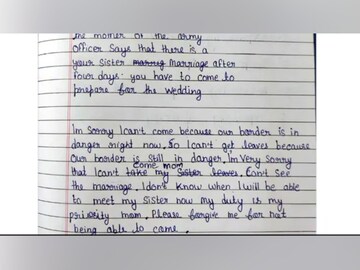 The mother of the army
officer Says that there is a
your Sister Marriage after
four days. you have to come to
prepare for the wedding
Im Sorry Ican't come because our border is in
danger right now. So I can't get leaves because
our border is still in danger. Im Very Sorry
that I can't come mom take my Sister leaves. Can't See
the marriage. I don't know when I will be able
to meet my sister now my duty is my
priority mom. Please forgive me for not
being able to came.